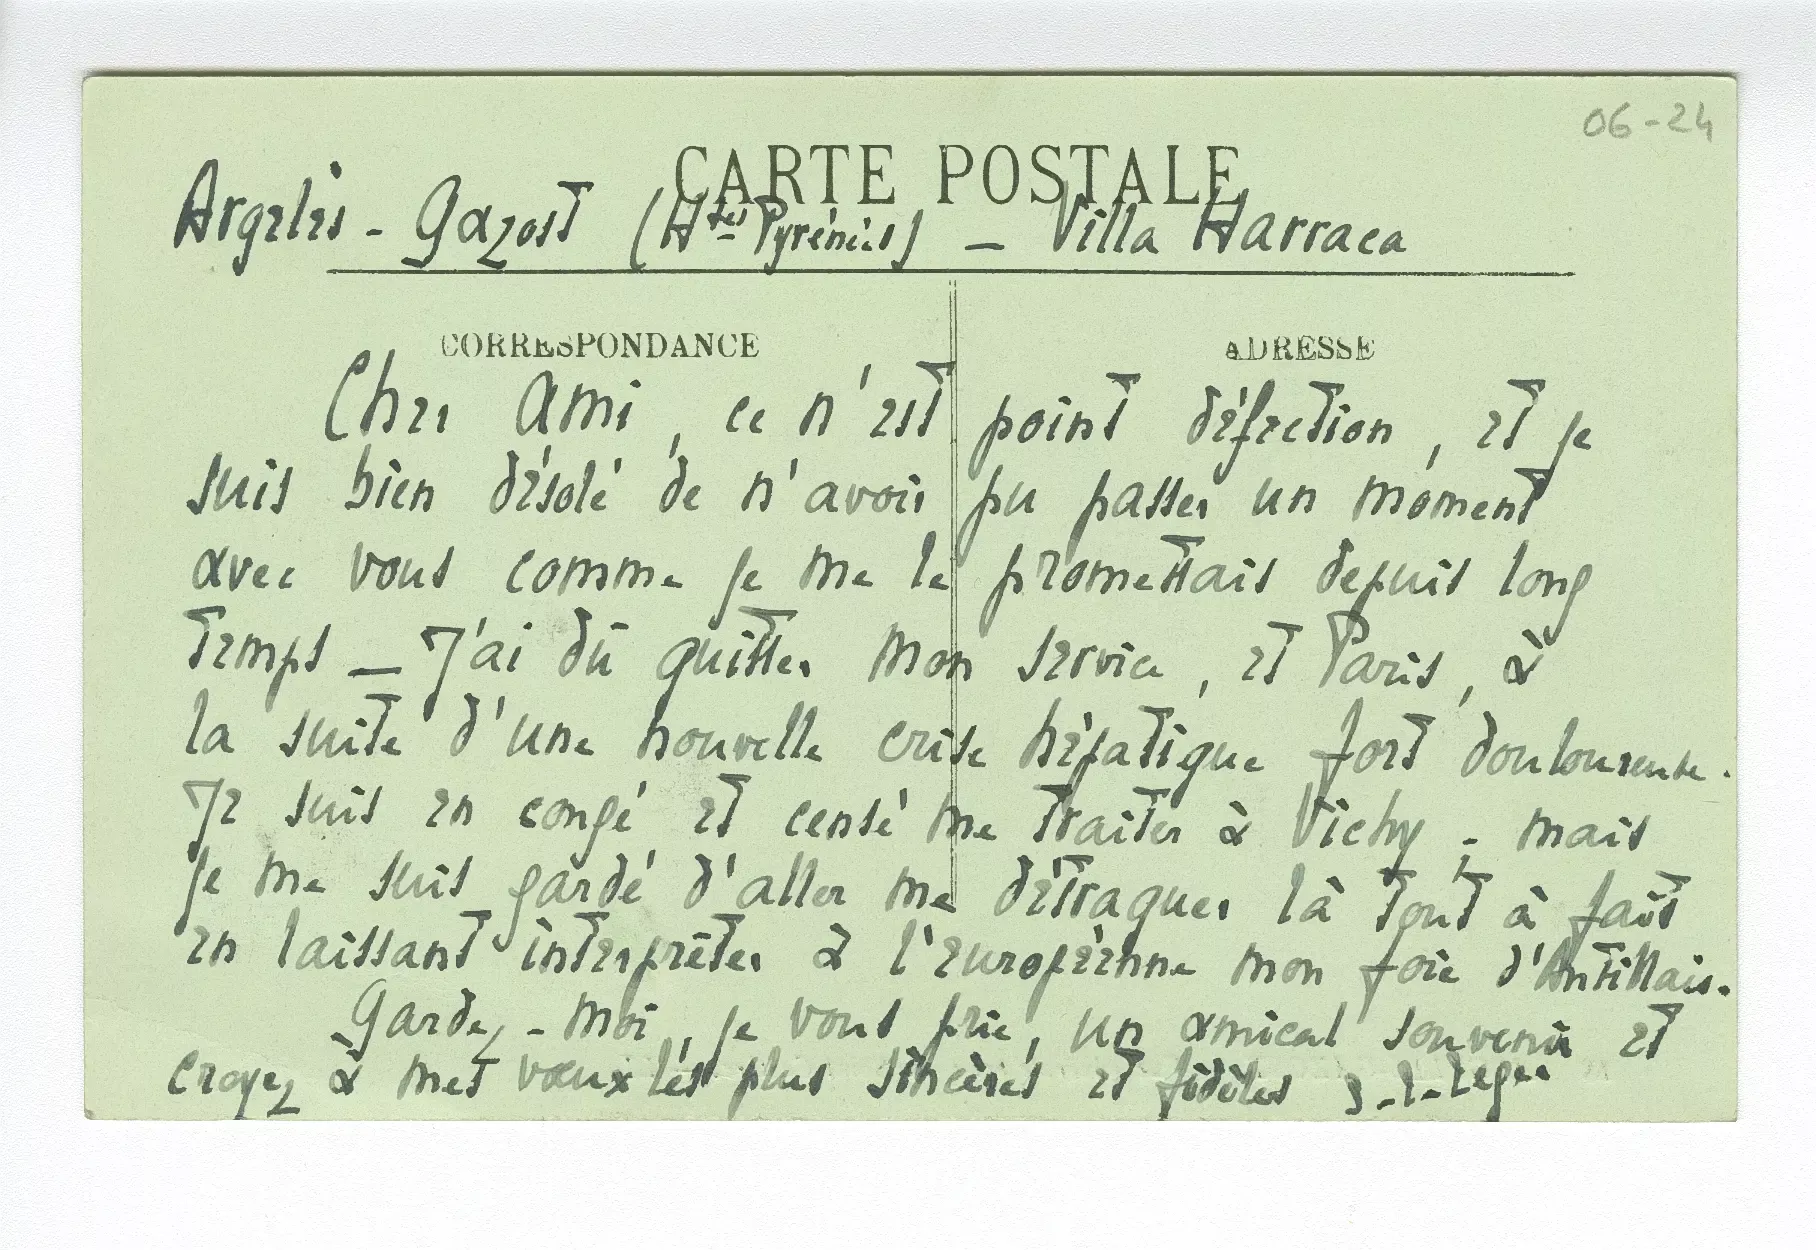 06-24
CARTE POSTALE
Argelès-Gazost (Htes Pyrénées) — Villa Harraca
CORRESPONDANCE
ADRESSE
Cher Ami, ce n'est point défection, et je
suis bien désolé de n'avoir pu passer un moment
avec vous comme je me le promettais depuis long
temps — J'ai dû quitter mon service, et Paris, à
la suite d'une nouvelle crise hépatique fort douloureuse.
Je suis en congé et censé me traiter à Vichy ; mais
je me suis gardé d'aller me détraquer là tout à fait
en laissant interpréter à l'européenne mon foie d'Antillais.
Gardez-moi, je vous prie, un amical souvenir et
croyez à mes vœux les plus sincères et fidèles